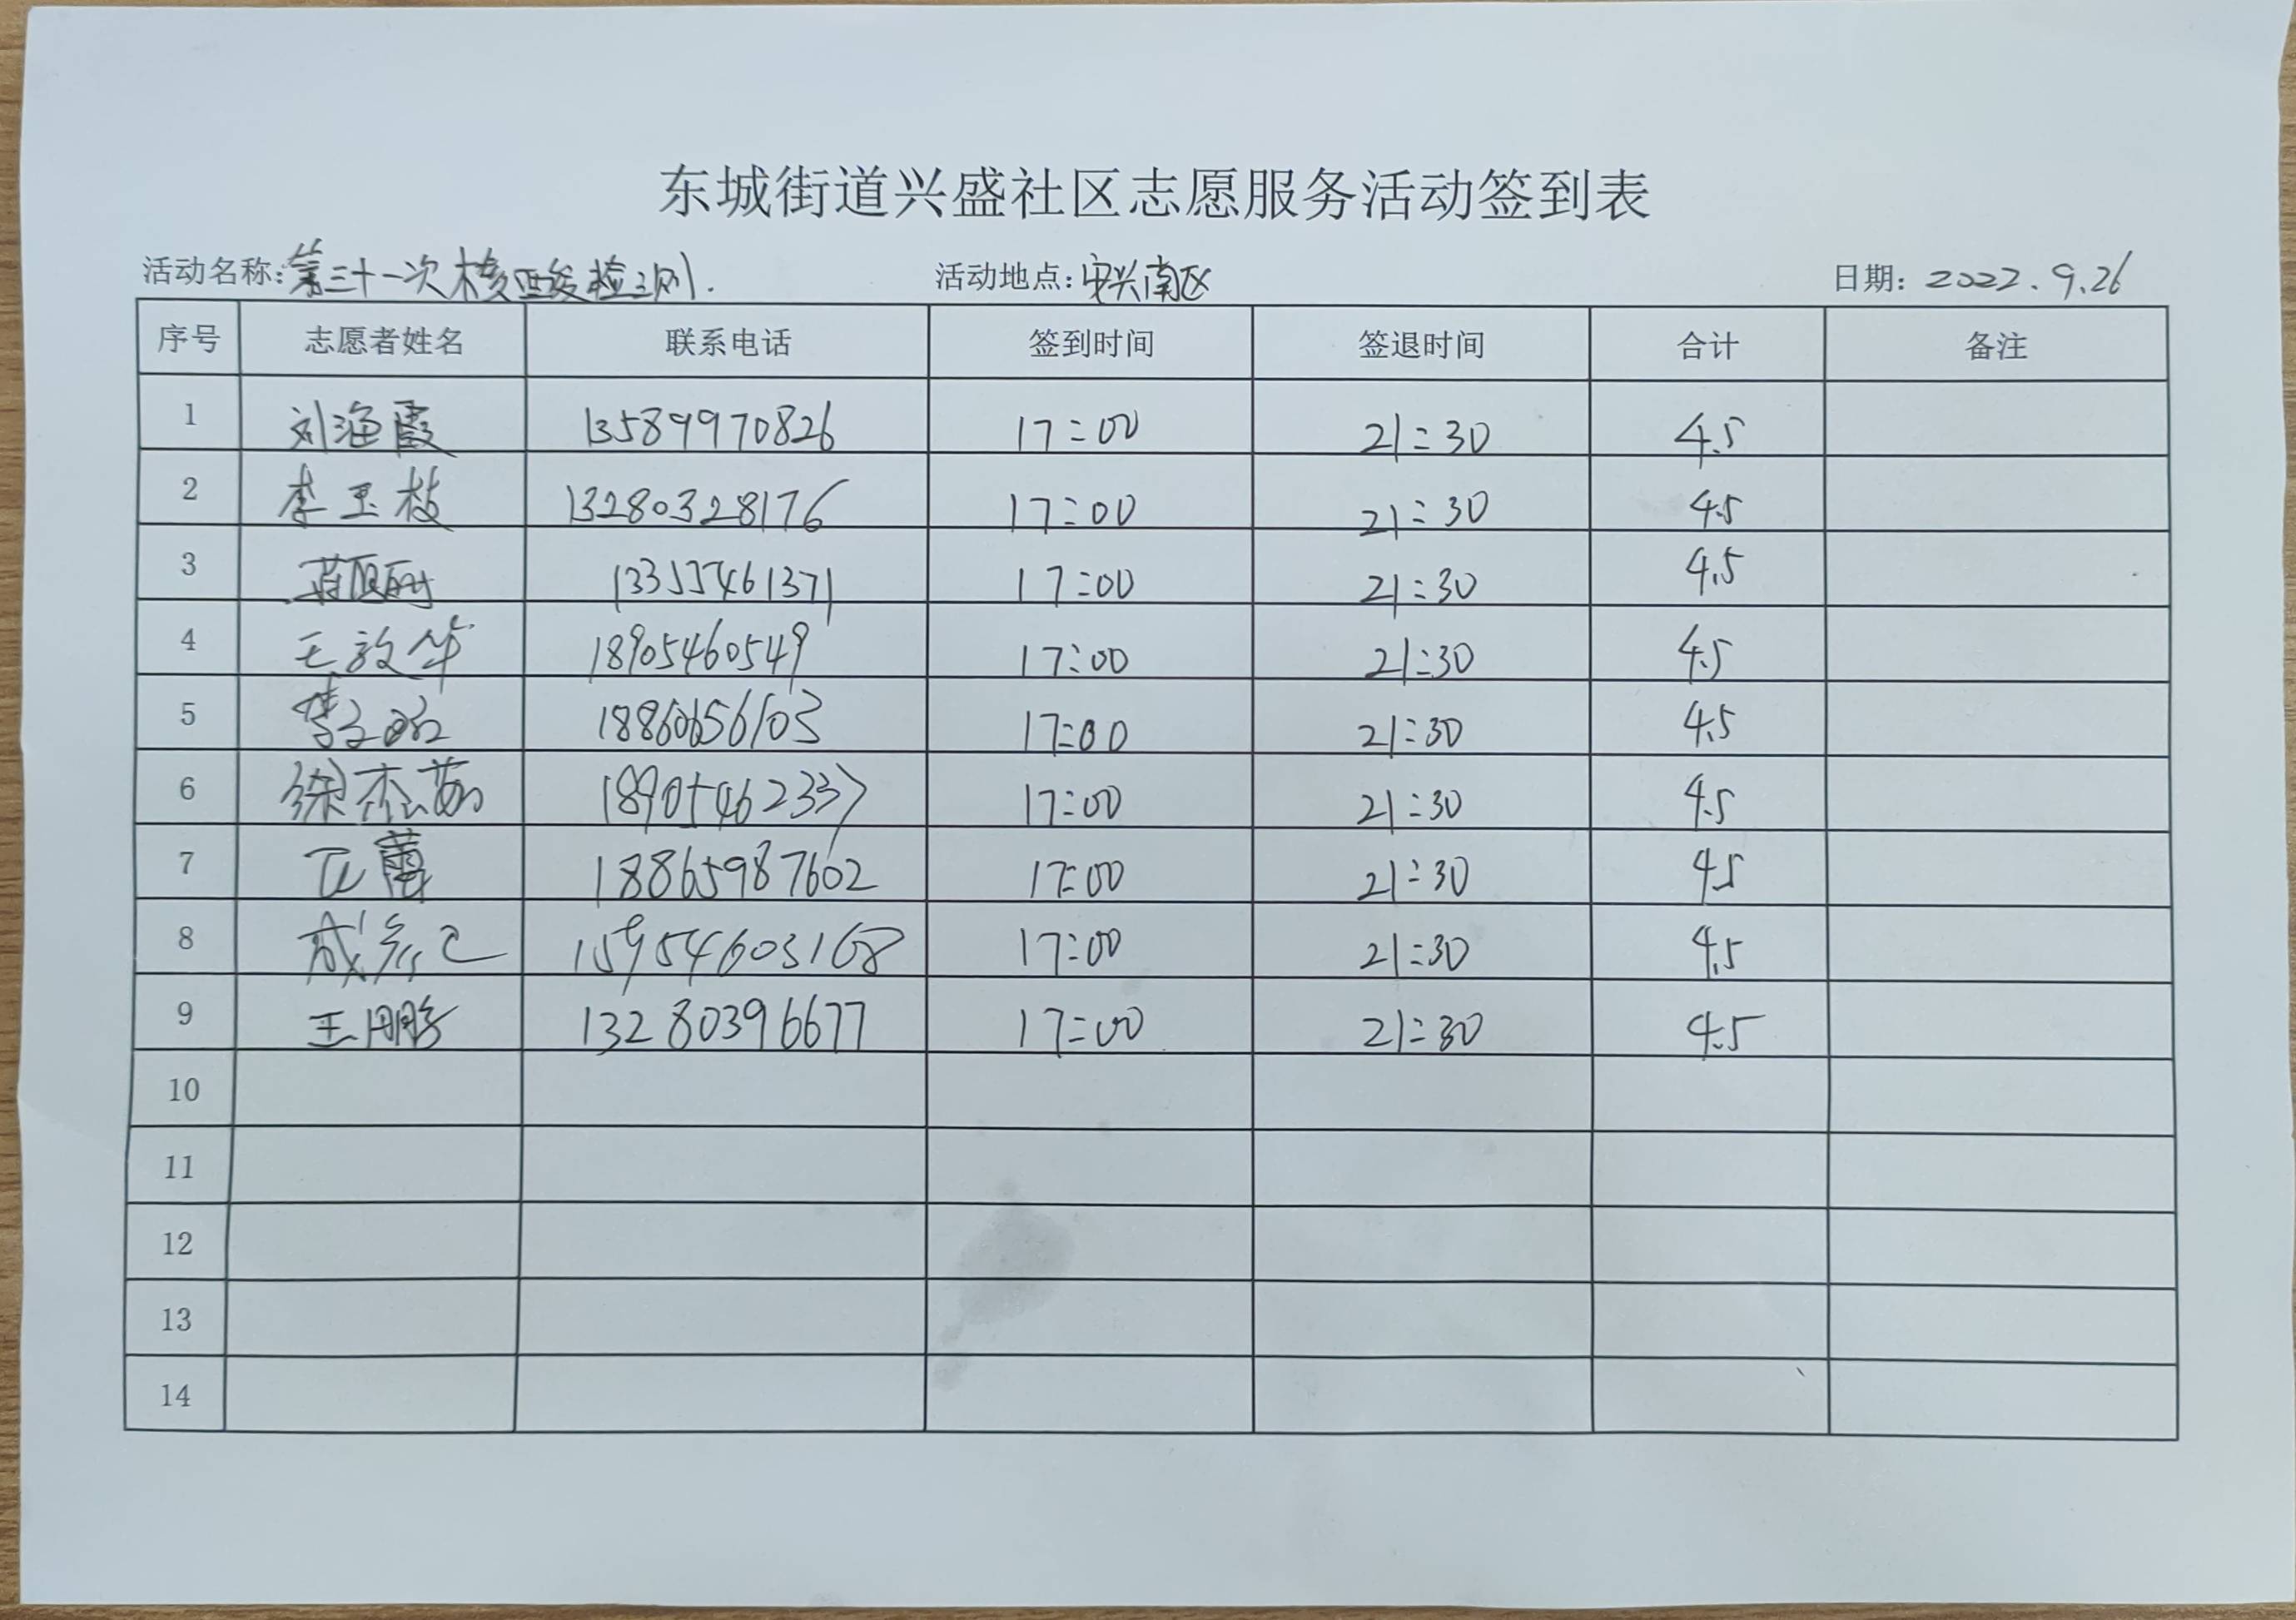 东城街道兴盛社区志愿服务活动签到表
活动名称:第三十一次核酸检测. 活动地点:安兴南区 日期: 2022.9.26
序号 志愿者姓名 联系电话 签到时间 签退时间 合计 备注
1 刘海霞 13589970826 17:00 21:30 4.5
2 李玉枝 13280328176 17:00 21:30 4.5
3 13355461371 17:00 21:30 4.5
4 王敦华 18905460549 17:00 21:30 4.5
5 18860656103 17:00 21:30 4.5
6 徐杰茹 18905462337 17:00 21:30 4.5
7 18865987602 17:00 21:30 4.5
8 15954603168 17:00 21:30 4.5
9 王鹏 13280396677 17:00 21:30 4.5
10
11
12
13
14